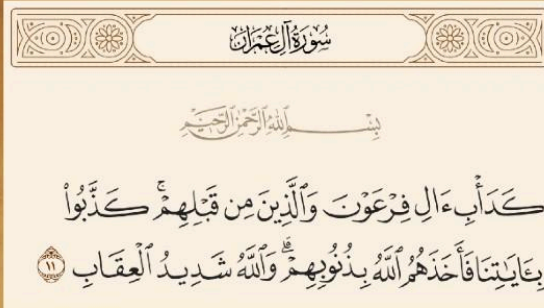 سُورَةُ آلِ عِمْرَانَ
بِسْمِ ٱللَّهِ ٱلرَّحْمَٰنِ ٱلرَّحِيمِ
كَدَأْبِ ءَالِ فِرْعَوْنَ وَٱلَّذِينَ مِن قَبْلِهِمْ ۚ كَذَّبُوا۟
بِـَٔايَٰتِنَا فَأَخَذَهُمُ ٱللَّهُ بِذُنُوبِهِمْ ۗ وَٱللَّهُ شَدِيدُ ٱلْعِقَابِ ١١